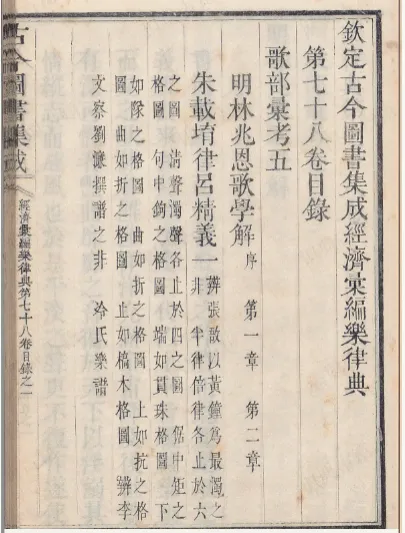 欽定古今圖書集成經濟彙編樂律典
第七十八卷目錄
歌部彙考五
明林兆恩歌學解 序 第一章 第二章
朱載堉律呂精義一 辨張敔以黃鐘為最濁之
非 半律倍律各止於六
之圖 清聲濁聲各止於四之圖 倨中矩之
格圖 句中鉤之格圖 端如貫珠格圖 下
如隊之格圖 曲如折之格圖 上如抗之格
圖 曲如折之格圖 止如槁木格圖 辨李
文察劉濂撰譜之非 冷氏樂譜
古今圖書集成
經濟彙編樂律典第七十八卷目錄之一